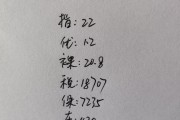 指:22
优:1.2
裸:20.8
税:18707
保:7235